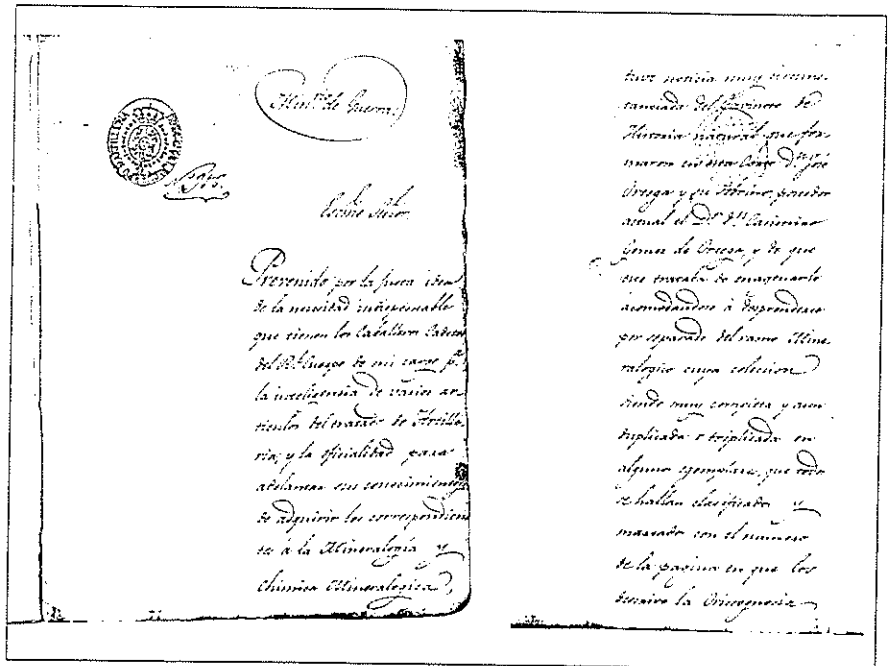 Min.rio de Guerra.
Excmo Señor.
Prevenido por la justa idea
de la necesidad indispensable
que tienen los Caballeros Cadetes
del Rl. Cuerpo de mi cargo pa.
la inteligencia de varios ar-
ticulos del tratado de Artille-
ria, y la oficialidad para
adelantar sus conocimientos
de adquirir los correspondien
tes á la Mineralogía y
Chimica Mineralogica,
tuve noticia muy circuns-
tanciada del Gavinete de
Historia natural que for-
maron en esta Corte Dn. José
Ortega y su Sobrino, poseedor
actual el Dr. Dn. Casimiro
Gomez de Ortega, y de que
este trataba de enagenarle
acomodandose á desprenderse
por separado del ramo Mine-
ralogico cuya coleccion
siendo muy completa y aun
duplicada o triplicada en
algunos egemplares, que todos
se hallan clasificados y
marcados con el número
de la pagina en que los
describe la Orictognosia